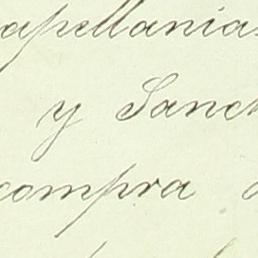 capellanias
y Sanch
compra